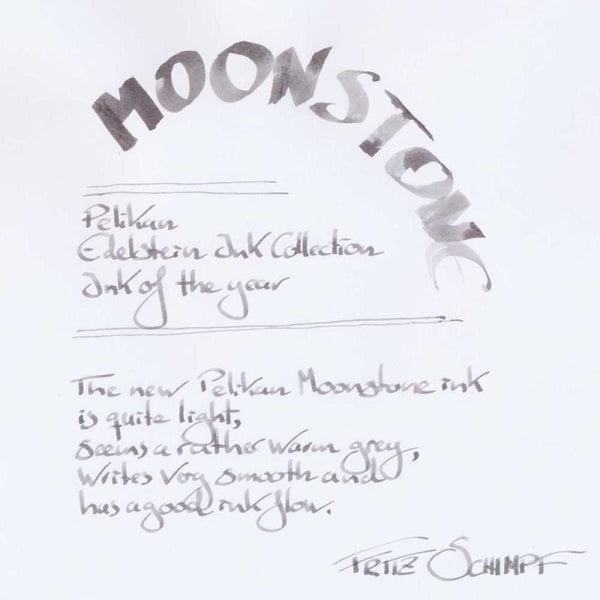 MOONSTONE
Pelikan
Edelstein Ink Collection
Ink of the year
The new Pelikan Moonstone ink
is quite light,
seems a rather warm grey,
writes very smooth and
has a good ink flow.
FRITZ SCHIMPF